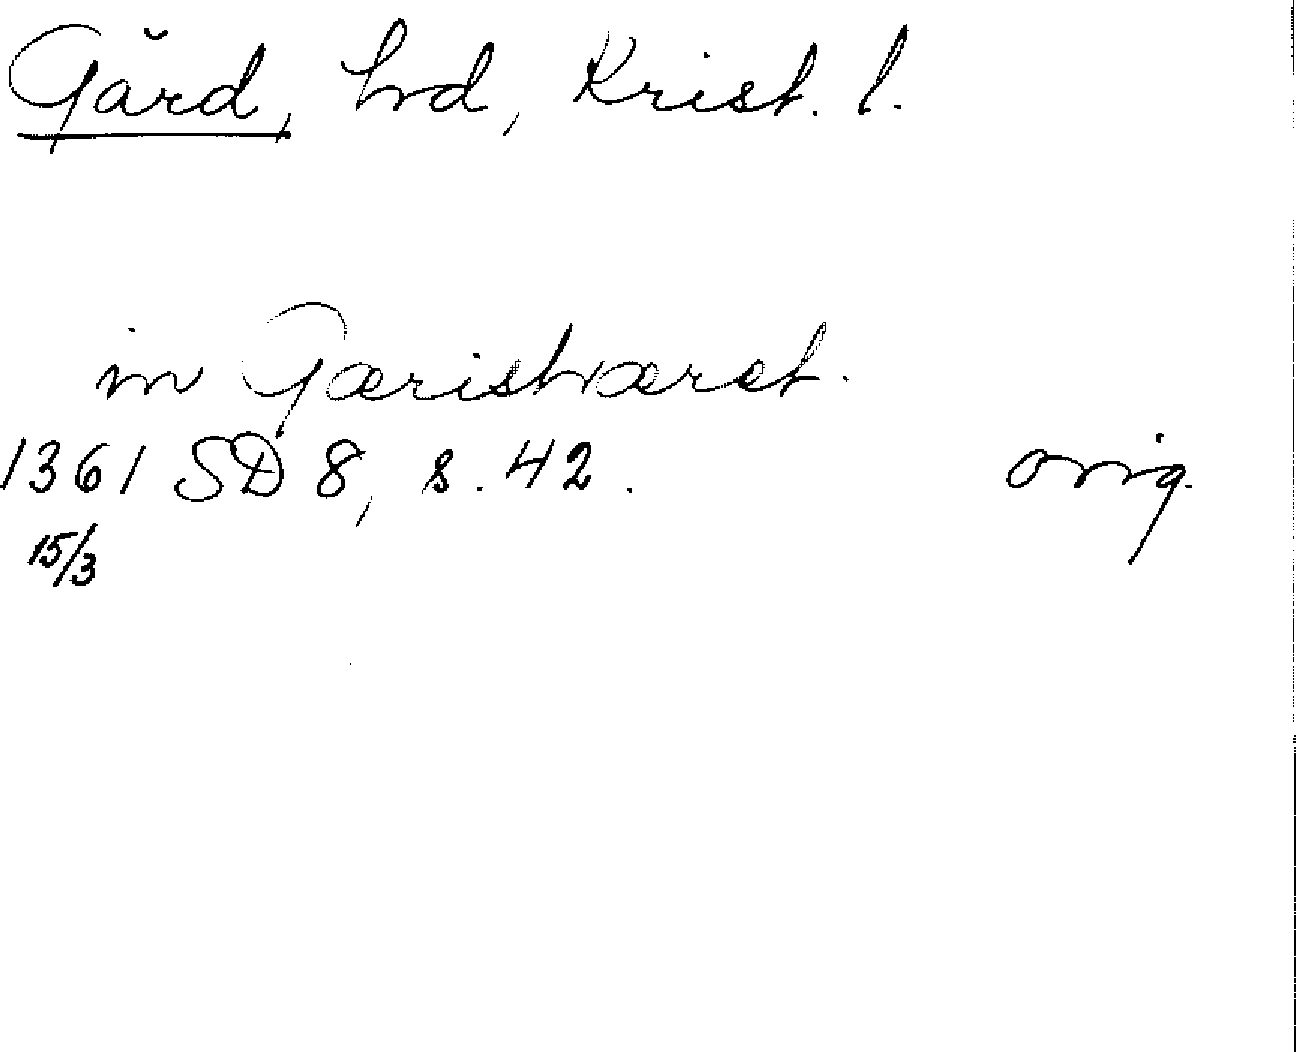 Gärd, hd, Krist. l.
in Gærishæret.
1361 SD 8, s. 42. orig.
15/3